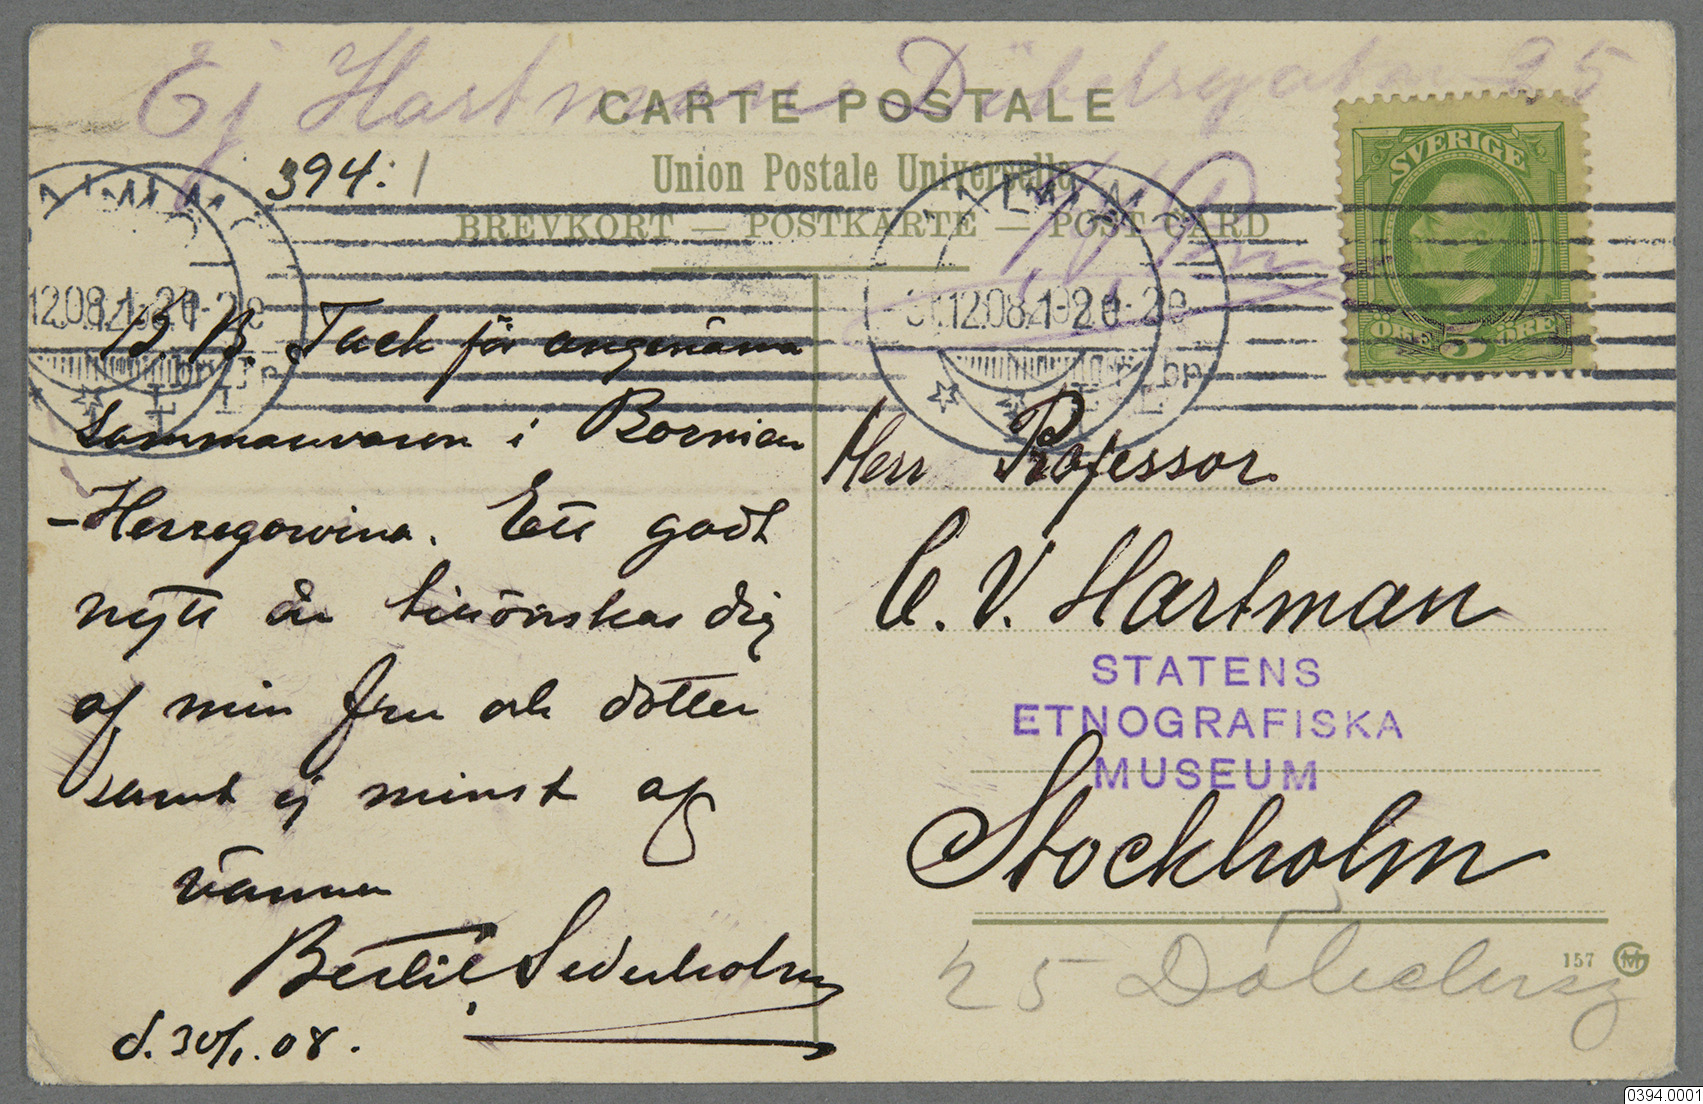 Ej Hartman Döbelnsgatan 25
CARTE POSTALE
394:1
Union Postale Universelle
BREVKORT — POSTKARTE — POST CARD
SVERIGE
ÖRE 5 ÖRE
31.12.08.1-2e
B. B. Tack för angenäma
sammanvaron i Bosnien
-Herzegowina. Ett godt
nytt år tillönskas dig
af min fru och dotter
samt ej minst af
vännen
Bertil Sederholm
d. 30/1.08.
Herr Professor
C. V. Hartman
STATENS
ETNOGRAFISKA
MUSEUM
Stockholm
25 Döbelnsg
157
0394.0001